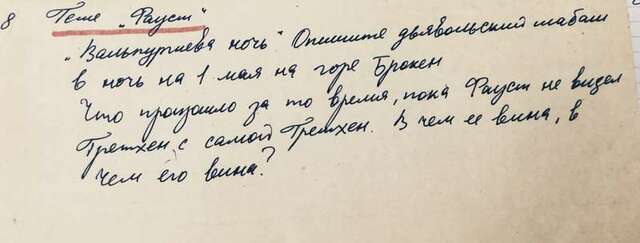 8 Гете „Фауст"
„Вальпургиева ночь" Опишите дьявольский шабаш
в ночь на 1 мая на горе Брокен
Что произошло за то время, пока Фауст не видел
Гретхен, с самой Гретхен. В чем ее вина, в
чем его вина?